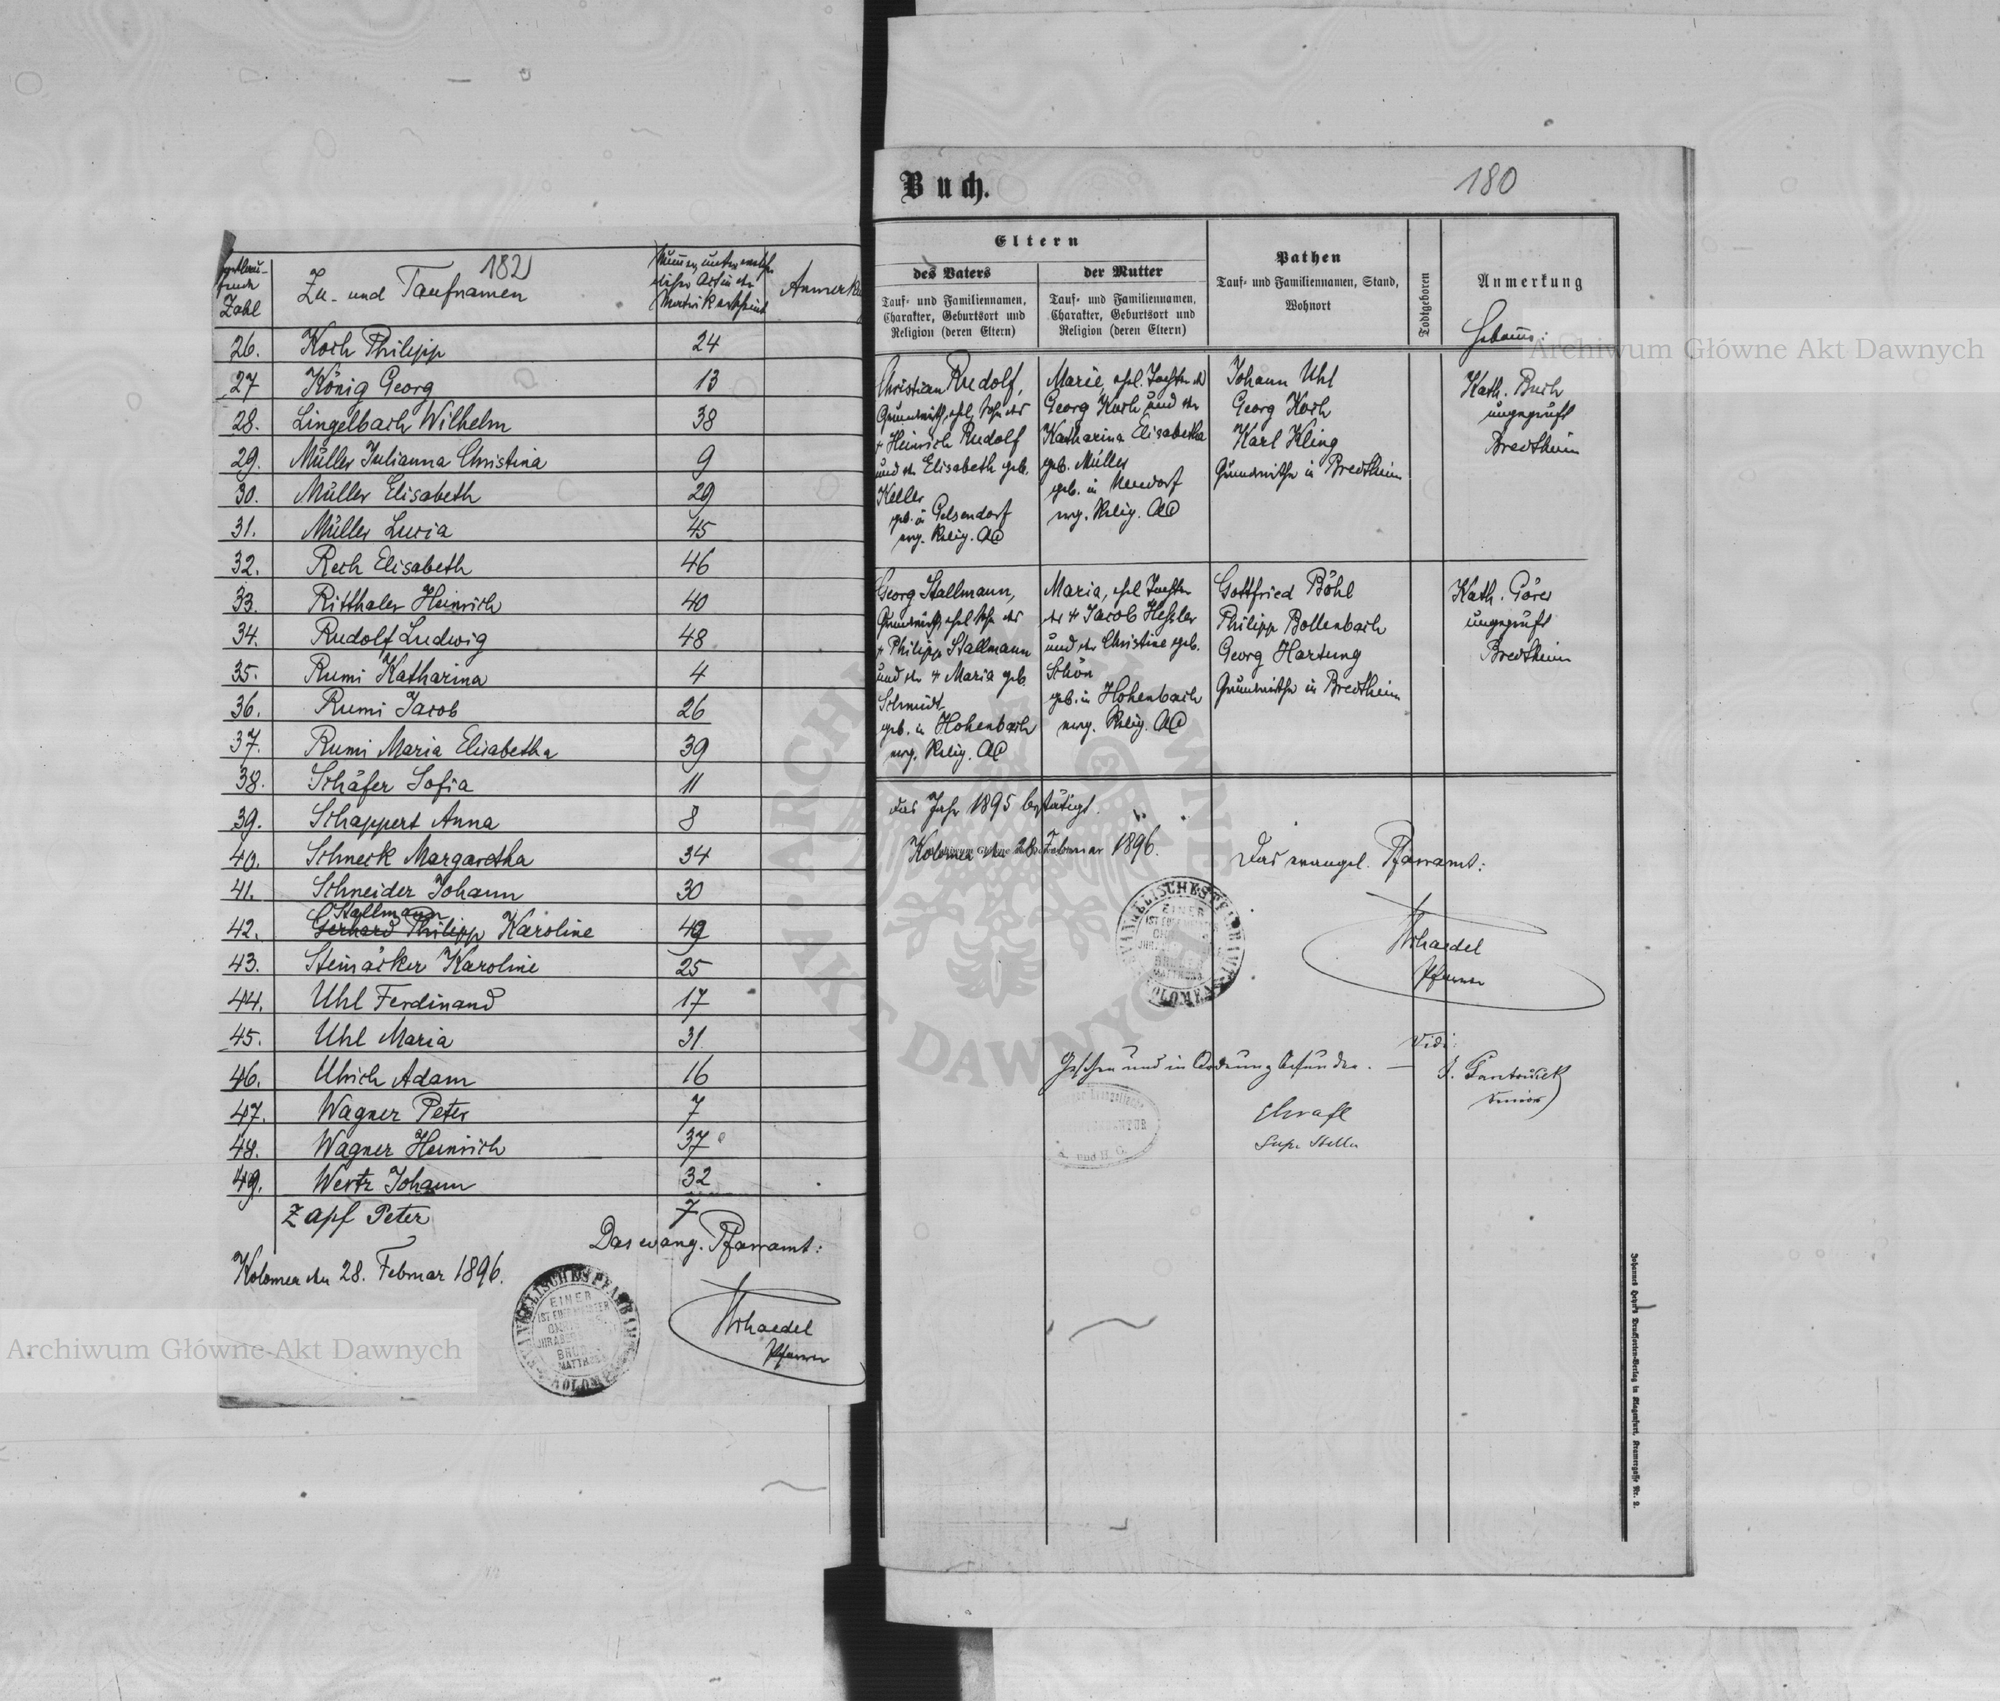 182
Fortlau-
fende
Zahl
Zu- und Taufnamen
Nummer, unter welcher
dieser Act in der
Matrik erscheint
Anmerk
26. Koch Philipp 24
27 König Georg 13
28. Lingelbach Wilhelm 38
29. Müller Julianna Christina 9
30. Müller Elisabeth 29
31. Müller Lucia 45
32. Rech Elisabeth 46
33. Ritthaler Heinrich 40
34. Rudolf Ludwig 48
35. Rumi Katharina 4
36. Rumi Jacob 26
37. Rumi Maria Elisabetha 39
38. Schäfer Sofia 11
39. Schappert Anna 8
40. Schneck Margaretha 34
41. Schneider Johann 30
Stallmann
42. Gerhard Philipp Karoline 49
43. Steinäcker Karoline 25
44. Uhl Ferdinand 17
45. Uhl Maria 31
46. Ulrich Adam 16
47. Wagner Peter 7
48. Wagner Heinrich 37
49. Wertz Johann 32
Zapf Peter 7
Das evang. Pfarramt:
Kolomea den 28. Februar 1896.
EINER
IST EUER MEISTER
BRÜDER
MATTH.
Schaedel
Pfarrer
Buch.
180
Eltern
des Vaters
Tauf- und Familiennamen,
Charakter, Geburtsort und
Religion (deren Eltern)
der Mutter
Tauf- und Familiennamen,
Charakter, Geburtsort und
Religion (deren Eltern)
Pathen
Tauf- und Familiennamen, Stand,
Wohnort
Todtgeboren
Anmerkung
Hebamme:
Christian Rudolf,
Grundwirth, ehel. Sohn des
+ Heinrich Rudolf
und der Elisabeth geb.
Keller
geb. in Gelsendorf
evg. Relig. AC
Marie, ehel. Tochter des
Georg Koch und der
Katharina Elisabetha
geb. Müller
geb. in Neudorf
evg. Relig. AC
Johann Uhl
Georg Koch
Karl Kling
Grundwirthe in Bredtheim
Kath. Buch
ungeprüft
Bredtheim
Georg Stallmann,
Grundwirth, ehel. Sohn des
+ Philipp Stallmann
und der + Maria geb.
Schmidt
geb. in Hohenbach
evg. Relig. AC
Maria, ehel. Tochter
des + Jacob Heßler
und der Christine geb.
Schön
geb. in Hohenbach
evg. Relig. AC
Gottfried Böhl
Philipp Bollenbach
Georg Hartung
Grundwirthe in Bredtheim
Kath. Göres
ungeprüft
Bredtheim
das Jahr 1895 bestätigt.
Kolomea den 28. Februar 1896.
Das evangel. Pfarramt:
EINER
BRÜDER
MATTH.
Schaedel
Pfarrer
Gesehen und in Ordnung befunden. —
Vidi:
Senior
A. und H. C.
Johannes Heyn's Drucksorten-Verlag in Klagenfurt, Kramergasse Nr. 2.
Archiwum Główne Akt Dawnych
Archiwum Główne Akt Dawnych